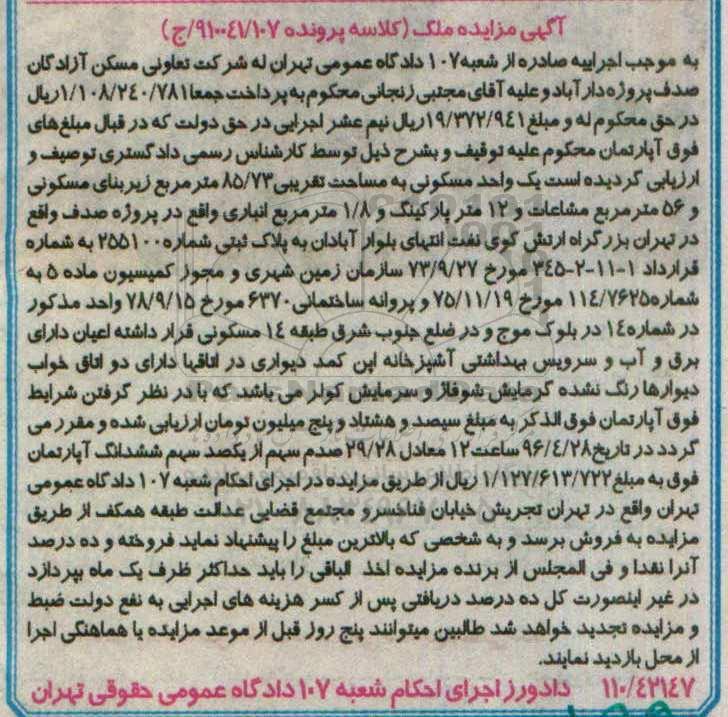 آگهی مزایده ملک (کلاسه پرونده ۹۱۰۰۴۱/۱۰۷/ج)
به موجب اجراییه صادره از شعبه ۱۰۷ دادگاه عمومی تهران له شرکت تعاونی مسکن آزادگان
صدف پروژه دارآباد و علیه آقای مجتبی زنجانی محکوم به پرداخت جمعا ۱/۱۰۸/۲۴۰/۷۸۱ ریال
در حق محکوم له و مبلغ ۱۹/۳۷۲/۹۴۱ ریال نیم عشر اجرایی در حق دولت که در قبال مبلغ‌های
فوق آپارتمان محکوم علیه توقیف و بشرح ذیل توسط کارشناس رسمی دادگستری توصیف و
ارزیابی گردیده است یک واحد مسکونی به مساحت تقریبی ۸۵/۷۳ مترمربع زیربنای مسکونی
و ۵۶ مترمربع مشاعات و ۱۲ متر پارکینگ و ۱/۸ مترمربع انباری واقع در پروژه صدف واقع
در تهران بزرگراه ارتش کوی نفت انتهای بلوار آبادان به پلاک ثبتی شماره ۲۵۵۱۰۰ به شماره
قرارداد ۱-۱۱-۲-۳۴۵ مورخ ۷۳/۹/۲۷ سازمان زمین شهری و مجوز کمیسیون ماده ۵ به
شماره ۱۱۴/۷۶۲۵ مورخ ۷۵/۱۱/۱۹ و پروانه ساختمانی ۶۳۷۰ مورخ ۷۸/۹/۱۵ واحد مذکور
در شماره ۱۴ در بلوک موج و در ضلع جنوب شرق طبقه ۱۴ مسکونی قرار داشته اعیان دارای
برق و آب و سرویس بهداشتی آشپزخانه اپن کمد دیواری در اتاقها دارای دو اتاق خواب
دیوارها رنگ نشده گرمایش شوفاژ و سرمایش کولر می باشد که با در نظر گرفتن شرایط
فوق آپارتمان فوق الذکر به مبلغ سیصد و هشتاد و پنج میلیون تومان ارزیابی شده و مقرر می
گردد در تاریخ ۹۶/۴/۲۸ ساعت ۱۲ معادل ۲۹/۲۸ صدم سهم از یکصد سهم ششدانگ آپارتمان
فوق به مبلغ ۱/۱۲۷/۶۱۳/۷۲۲ ریال از طریق مزایده در اجرای احکام شعبه ۱۰۷ دادگاه عمومی
تهران واقع در تهران تجریش خیابان فناخسرو مجتمع قضایی عدالت طبقه همکف از طریق
مزایده به فروش برسد و به شخصی که بالاترین مبلغ را پیشنهاد نماید فروخته و ده درصد
آنرا نقدا و فی المجلس از برنده مزایده اخذ الباقی را باید حداکثر ظرف یک ماه بپردازد
در غیر اینصورت کل ده درصد دریافتی پس از کسر هزینه های اجرایی به نفع دولت ضبط
و مزایده تجدید خواهد شد طالبین میتوانند پنج روز قبل از موعد مزایده با هماهنگی اجرا
از محل بازدید نمایند.
۱۱۰/۴۲۱۴۷ دادورز اجرای احکام شعبه ۱۰۷ دادگاه عمومی حقوقی تهران